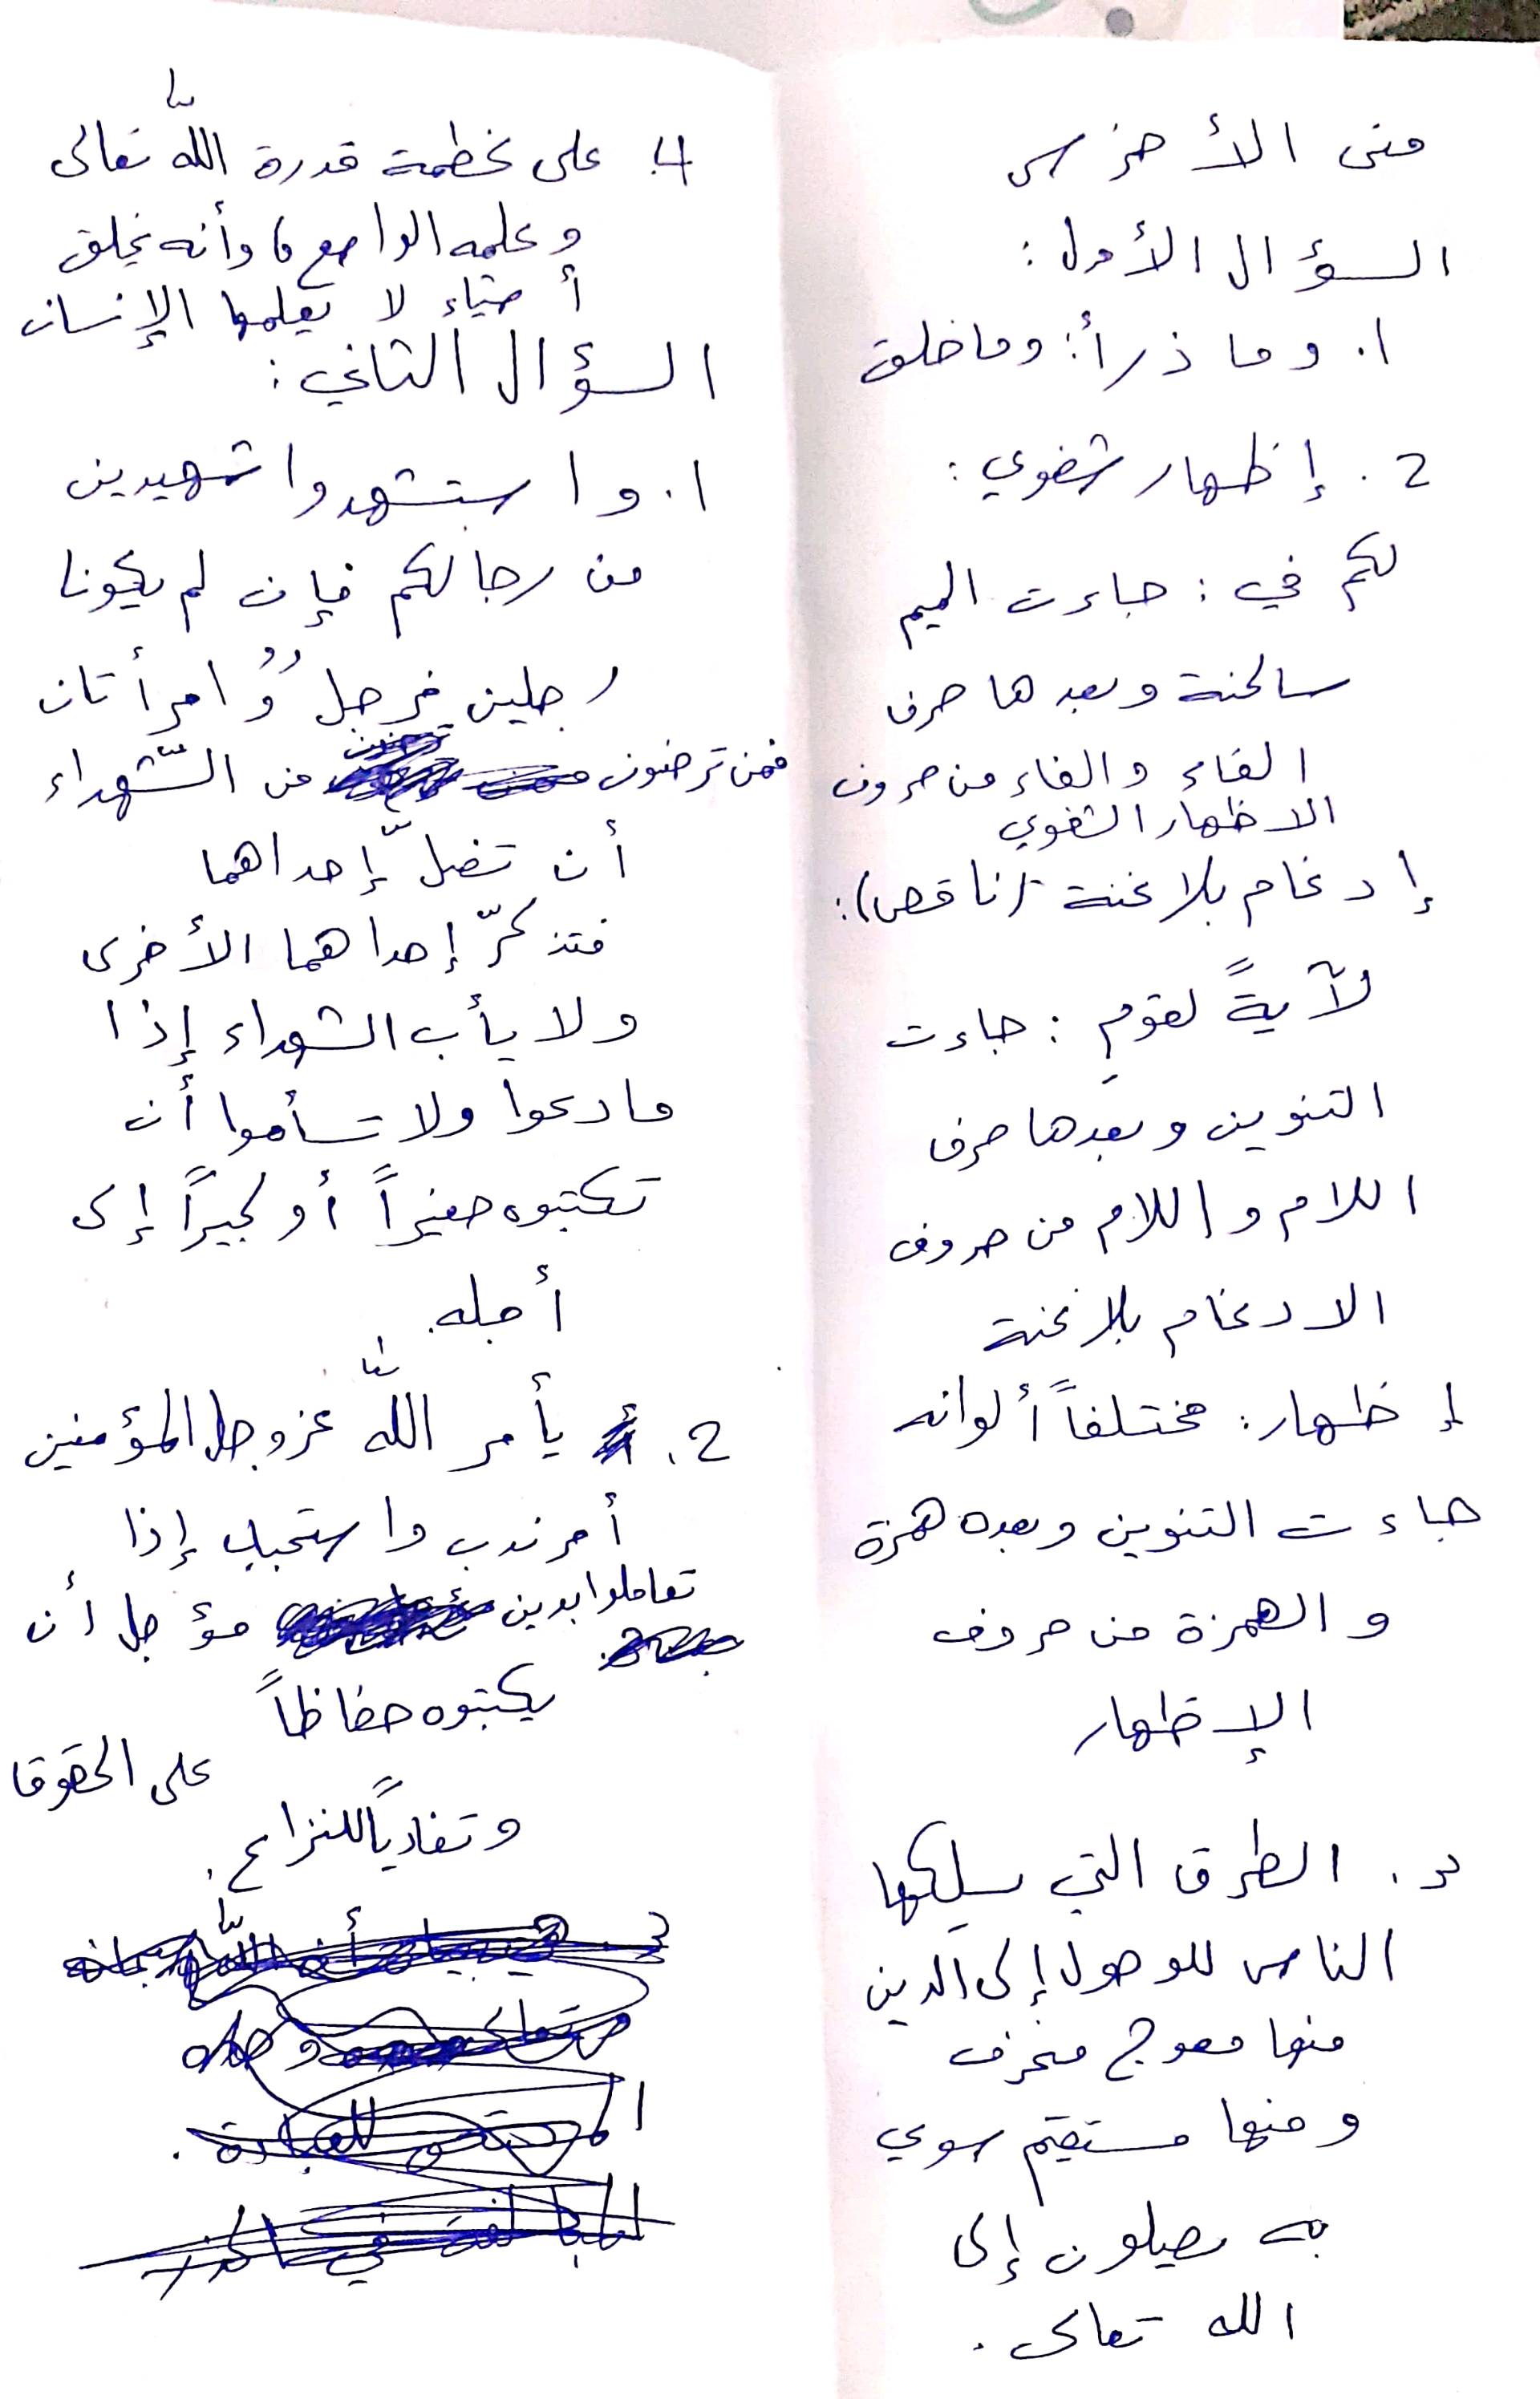 منى الأخرس
السؤال الأول:
1. وما ذرأ: وما خلق
2. إظهار شفوي:
لكم في: جاءت الميم
ساكنة وبعدها حرف
الفاء والفاء من حروف
الاظهار الشفوي
إدغام بلا غنة (ناقص):
لآيةً لقومٍ: جاءت
التنوين وبعدها حرف
اللام واللام من حروف
الادغام بلا غنة
إظهار: مختلفاً ألوانه
جاءت التنوين وبعده همزة
والهمزة من حروف
الإظهار
3. الطرق التي يسلكها
الناس للوصول إلى الدين
منها معوج منحرف
ومنها مستقيم سوي
به يصلون إلى
الله تعالى.
4. على عظمة قدرة اللّٰه تعالى
وعلمه الواسع، وأنه يخلق
أشياء لا يعلمها الإنسان
السؤال الثاني:
1. واستشهدوا شهيدين
من رجالكم فإن لم يكونا
رجلين فرجلٌ وُامرأتان
فمن ترضون من الشّهداء
أن تضلّ إحداهما
فتذكرّ إحداهما الأخرى
ولا يأب الشهداء إذا
ما دعوا ولا تسأموا أن
تكتبوه صغيراً أو كبيراً إلى
أجله.
2. يأمر اللّٰه عز وجل المؤمنين
أمر ندب واستحباب إذا
تعاملوا بدين مؤجل أن
يكتبوه حفاظاً
على الحقوق
وتفادياً للنزاع.